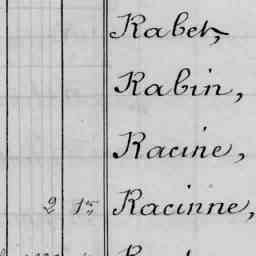 Rabet,
Rabin,
Racine,
2 15 Racinne,